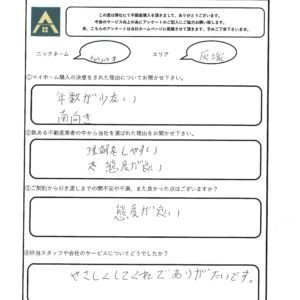 この度は弊社にて不動産購入を頂きまして、ありがとうございます。
今後のサービス向上の為にアンケートのご記入にご協力お願い致します。
尚、こちらのアンケートは当社ホームページに掲載させて頂きます。予めご了承下さいませ。
ニックネーム
エリア 灰塚
①マイホーム購入の決意をされた理由についてお聞かせ下さい。
年数が少ない
南向き
②数ある不動産業者の中から当社を選ばれた理由をお聞かせ下さい。
理解をしやすい
態度が良い
③ご契約から引き渡しまでの間不安や不満、また良かった点はございますか?
態度が良い
④担当スタッフや会社のサービスについてどうでしたか?
やさしくしてくれでありがたいです。